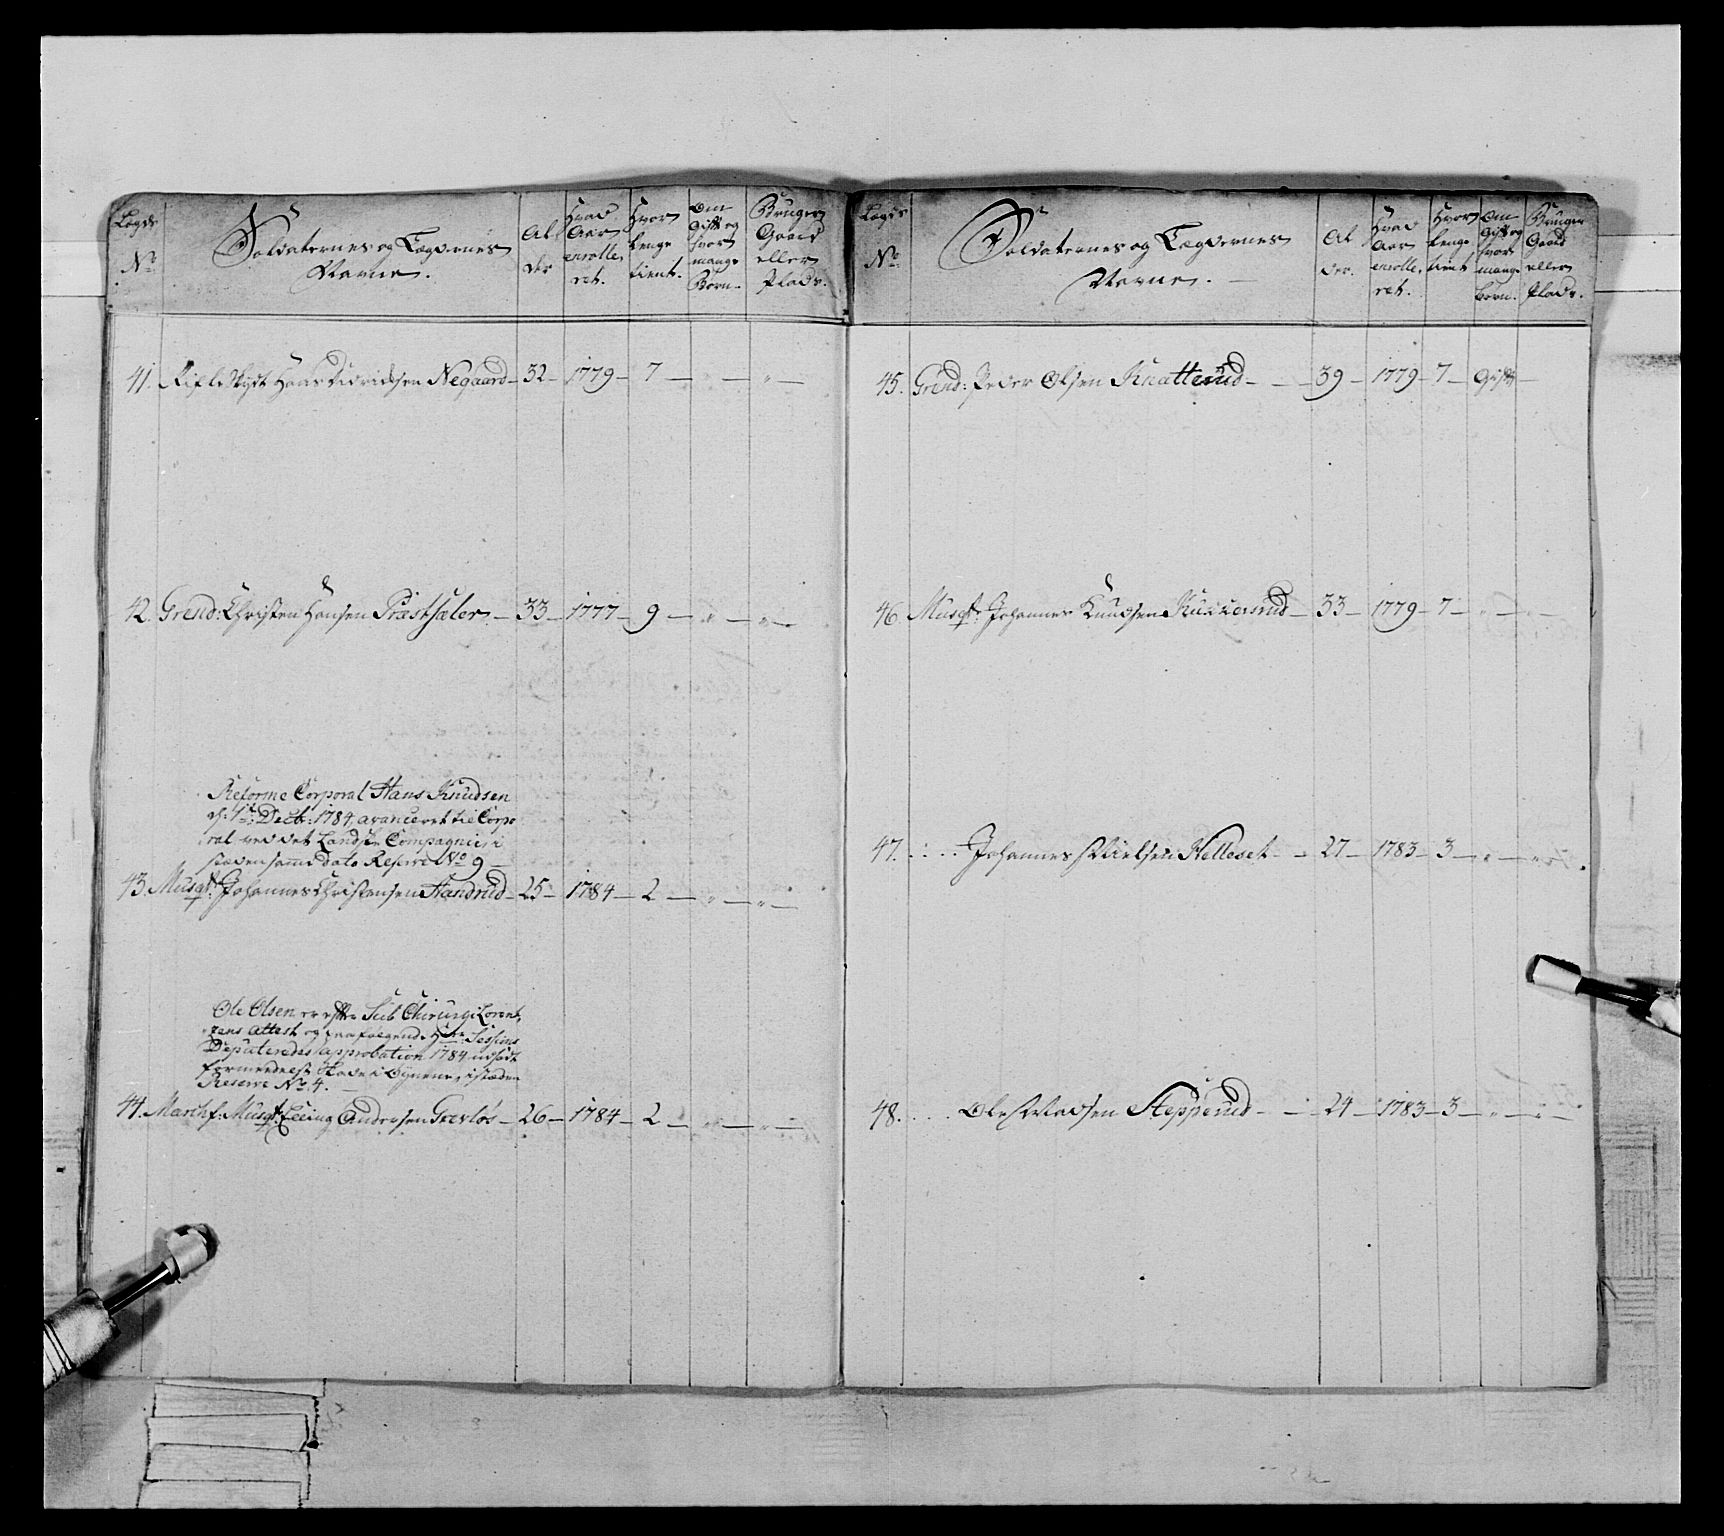 Lægds
No
Soldaternes og Lægdernes
Navne.
Al
der
Hvad
Aar
enrolle,
ret.
Hvor
længe
tient.
Om
Gift og
hvor
mange
Børn.
Bruger
Gaard
eller
Plads.
41. Hans Didrichsen Negaard – 32 – 1779 – 7 – " – " –
42. Grend: Christen Hansen Præstsæter – 33 – 1777 – 9 – " – " –
Reforme Corporal Hans Knudsen
d: 1te Decbr: 1784 avanceret til Corpo
ral ved det Landske Compagnie, i
stæden samme dato Reserve No 9 –
43. Musqt: Johannes Christensen Aandrud – 25 – 1784 – 2 – " – " –
Ole Olsen er efter Sub Chirurgi Lorent,
zens Attest og paafølgende Hr Sessions
Deputeredes approbation 1784 udsødt
formedelst Skade i Øynene, i stæden
Reserve No 4. –
44. Musqt: Andersen Grevløs – 26 – 1784 – 2 – " – " –
Lægds
No
Soldaternes og Lægdernes
Navne. –
Al
der.
Hvad
Aar
enrolle,
ret.
Hvor
længe
tient
Om
Gift og
hvor
mange
børn.
Bruger
Gaard
eller
Plads.
45. Grend: Peder Olsen Knatterud – – – 39 – 1779 – 7 – Gift –
46. Musqt: Johannes Knudsen – 33 – 1779 – 7 – " – " –
47. . . . . Johannes Nielsen Nelleset – – 27 – 1783 – 3 – " – "
48. . . . . Ole Madsen Stepperud – – 24 – 1783 – 3 – " – " –